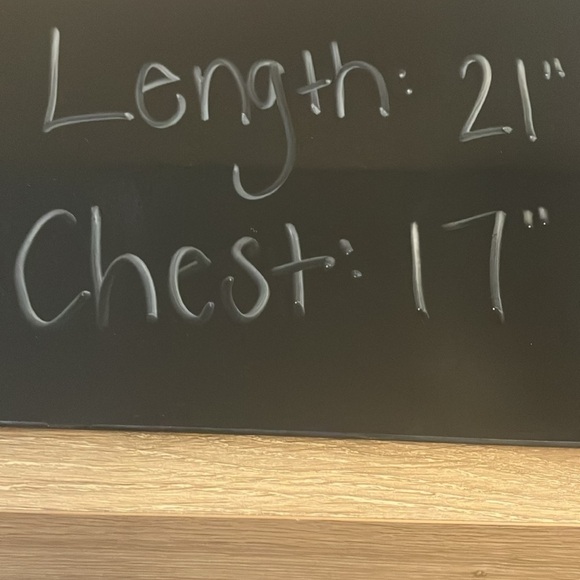 Length: 21"
Chest: 17"